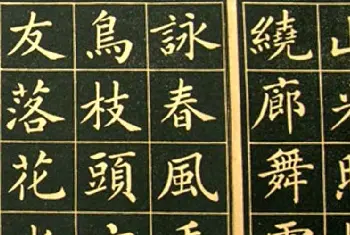 山光照
繞廊舞
詠春風
鳥枝頭
友落花